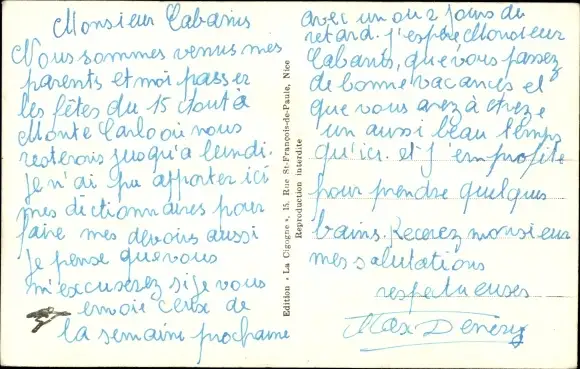 Monsieur Cabanis
Nous sommes venus mes
parents et moi passer
les fêtes du 15 Aout à
Monte Carlo où nous
resterons jusqu'a lundi.
Je n'ai pu apporter ici
mes dictionnaires pour
faire mes devoirs aussi
je pense que vous
m'excuserez si je vous
envoie ceux de
la semaine prochaine
avec un ou 2 jours de
retard. j'espère Monsieur
Cabanis, que vous passez
de bonne vacances et
que vous avez à
un aussi beau temps
qu'ici. et j'en profite
pour prendre quelques
bains. Recevez monsieur
mes salutations
respetueuses
Max
Edition « La Cigogne », 15, Rue St-François-de-Paule, Nice
Reproduction interdite